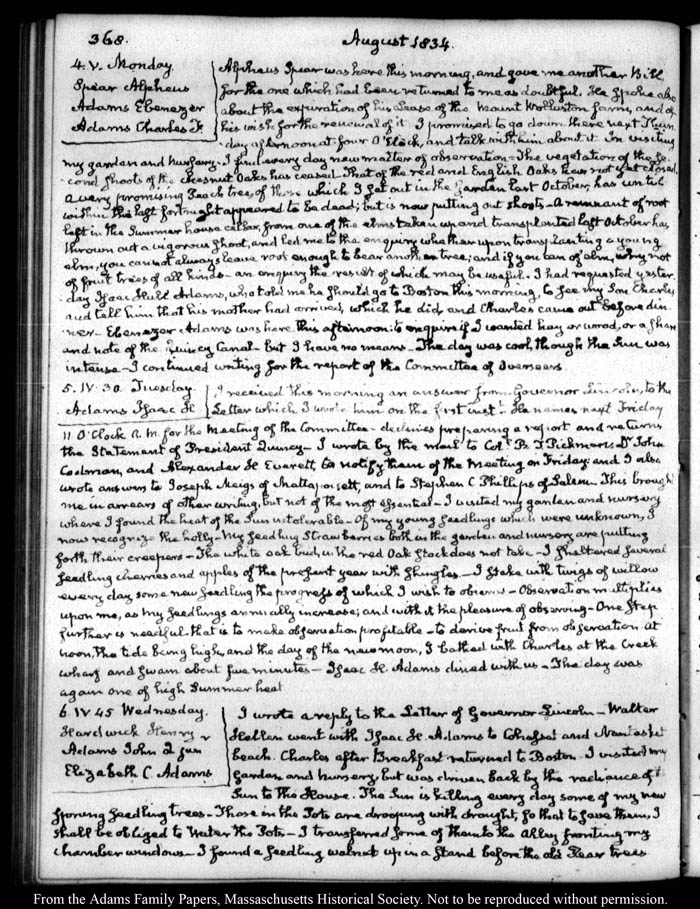 368.
August 1834.
4. V. Monday
Spear Alpheus
Adams Ebenezer
Adams Charles F.
Alpheus Spear was here this morning, and gave me another Bill
for the one which had been returned to me as doubtful. He spoke also
about the expiration of his Lease of the Mount Wollaston farm, and of
his wish for the renewal of it. I promised to go down there next Thurs-
day afternoon at four O'Clock, and talk with him about it. In visiting
my garden and nursery. I find every day new matter of observation. The vegetation of the se-
cond shoots of the Chesnut Oaks has ceased. That of the red and English Oaks has not yet closed.
A very promising Peach tree, of those which I set out in the Garden last October, has until
within the last fortnight appeared to be dead; but is now putting out shoots. A remnant of root
left in the Summer house cellar, from one of the elms taken up and transplanted last October has
thrown out a vigorous shoot, and led me to the enquiry whether upon transplanting a young
elm, you cannot always leave root enough to bear another tree; and if you can of elm, why not
of fruit trees of all kinds. an enquiry the result of which may be useful. I had requested yester-
day Isaac Hull Adams, who told me he should go to Boston this morning, to see my Son Charles
and tell him that his mother had arrived, which he did, and Charles came out before din-
ner. Ebenezer Adams was here this afternoon to enquire if I wanted hay or wood, or a share
and note of the Quincy Canal. but I have no means. The day was cool, though the Sun was
intense. I continued writing for the report of the Committee of Overseers.
5. IV. 30. Tuesday.
Adams Isaac H.
I received this morning an answer from Governor Lincoln, to the
Letter which I wrote him on the first inst. He names next Friday
11 O'Clock A.M. for the Meeting of the Committee. declines preparing a report and returns
the Statement of President Quincy. I wrote by the mail to Col. B. T. Pickman, Dr John
Codman, and Alexander H. Everett, to notify them of the Meeting on Friday: and I also
wrote answers to Joseph Meigs of Mattapoisett, and to Stephen C Phillips of Salem. This brought
me in arrears of other writing, but not of the most essential. I visited my garden and nursery
where I found the heat of the Sun intolerable. Of my young seedlings which were unknown, I
now recognize the holly. My seedling Strawberries both in the garden and nursery are putting
forth their creepers. The white oak bud, in the red Oak stock does not take. I sheltered several
seedling cherries and apples of the present year with shingles. I stake with twigs of willow
every day some new seedling the progress of which I wish to observe. Observation multiplies
upon me, as my seedlings annually increase; and with it the pleasure of observing. One Step
further is needful. that is to make observation profitable. to derive fruit from observation. At
noon, the tide being high, and the day of the new moon, I bathed with Charles at the Creek
wharf and swam about five minutes. Isaac H. Adams dined with us. The day was
again one of high Summer heat
6 IV 45 Wednesday.
Hardwick Henry
Adams John 2 jun
Elizabeth C. Adams
I wrote a reply to the Letter of Governor Lincoln. Walter
Hellen went with Isaac H. Adams to Cohasset and Nantasket
beach. Charles after Breakfast returned to Boston. I visited my
garden and nursery, but was driven back by the radiance of the
Sun to the House. The Sun is killing every day some of my new
sprung seedling trees. Those in the Pots are drooping with drought, so that to save them, I
shall be obliged to Water the Pots. I transferred some of them to the Alley fronting my
chamber windows. I found a seedling walnut up in a stand before the old Pear trees
From the Adams Family Papers, Massachusetts Historical Society. Not to be reproduced without permission.